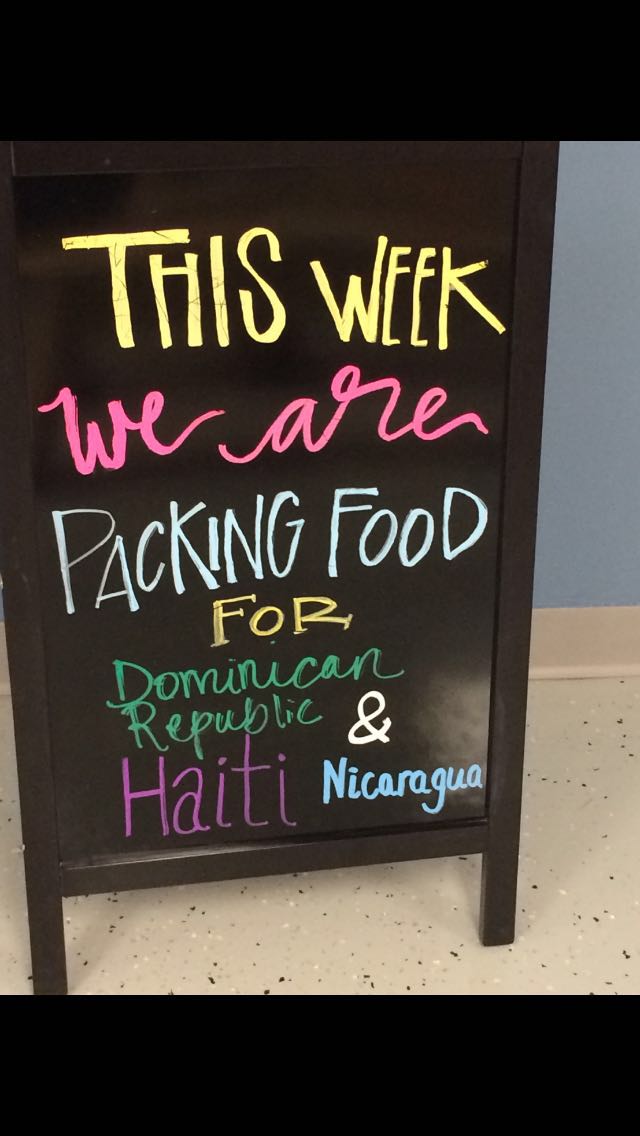 THIS WEEK
we are
PACKING FOOD
FOR
Dominican
Republic &
Haiti Nicaragua